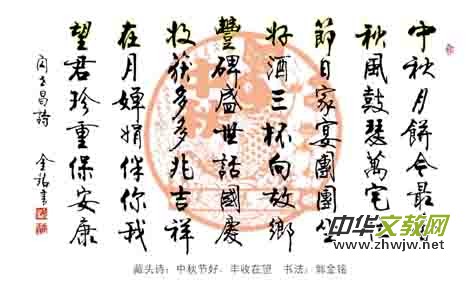 中秋月餅今最
秋風鼓瑟萬宅
節日家宴團團坐
好酒三杯向故鄉
豐碑盛世話國慶
收获多多兆吉祥
在月嬋娟伴你我
望君珍重保安康
昌詩
金銘書
中华文教网
www.zhwjw.net
藏头诗：中秋节好，丰收在望 书法：郭金铭